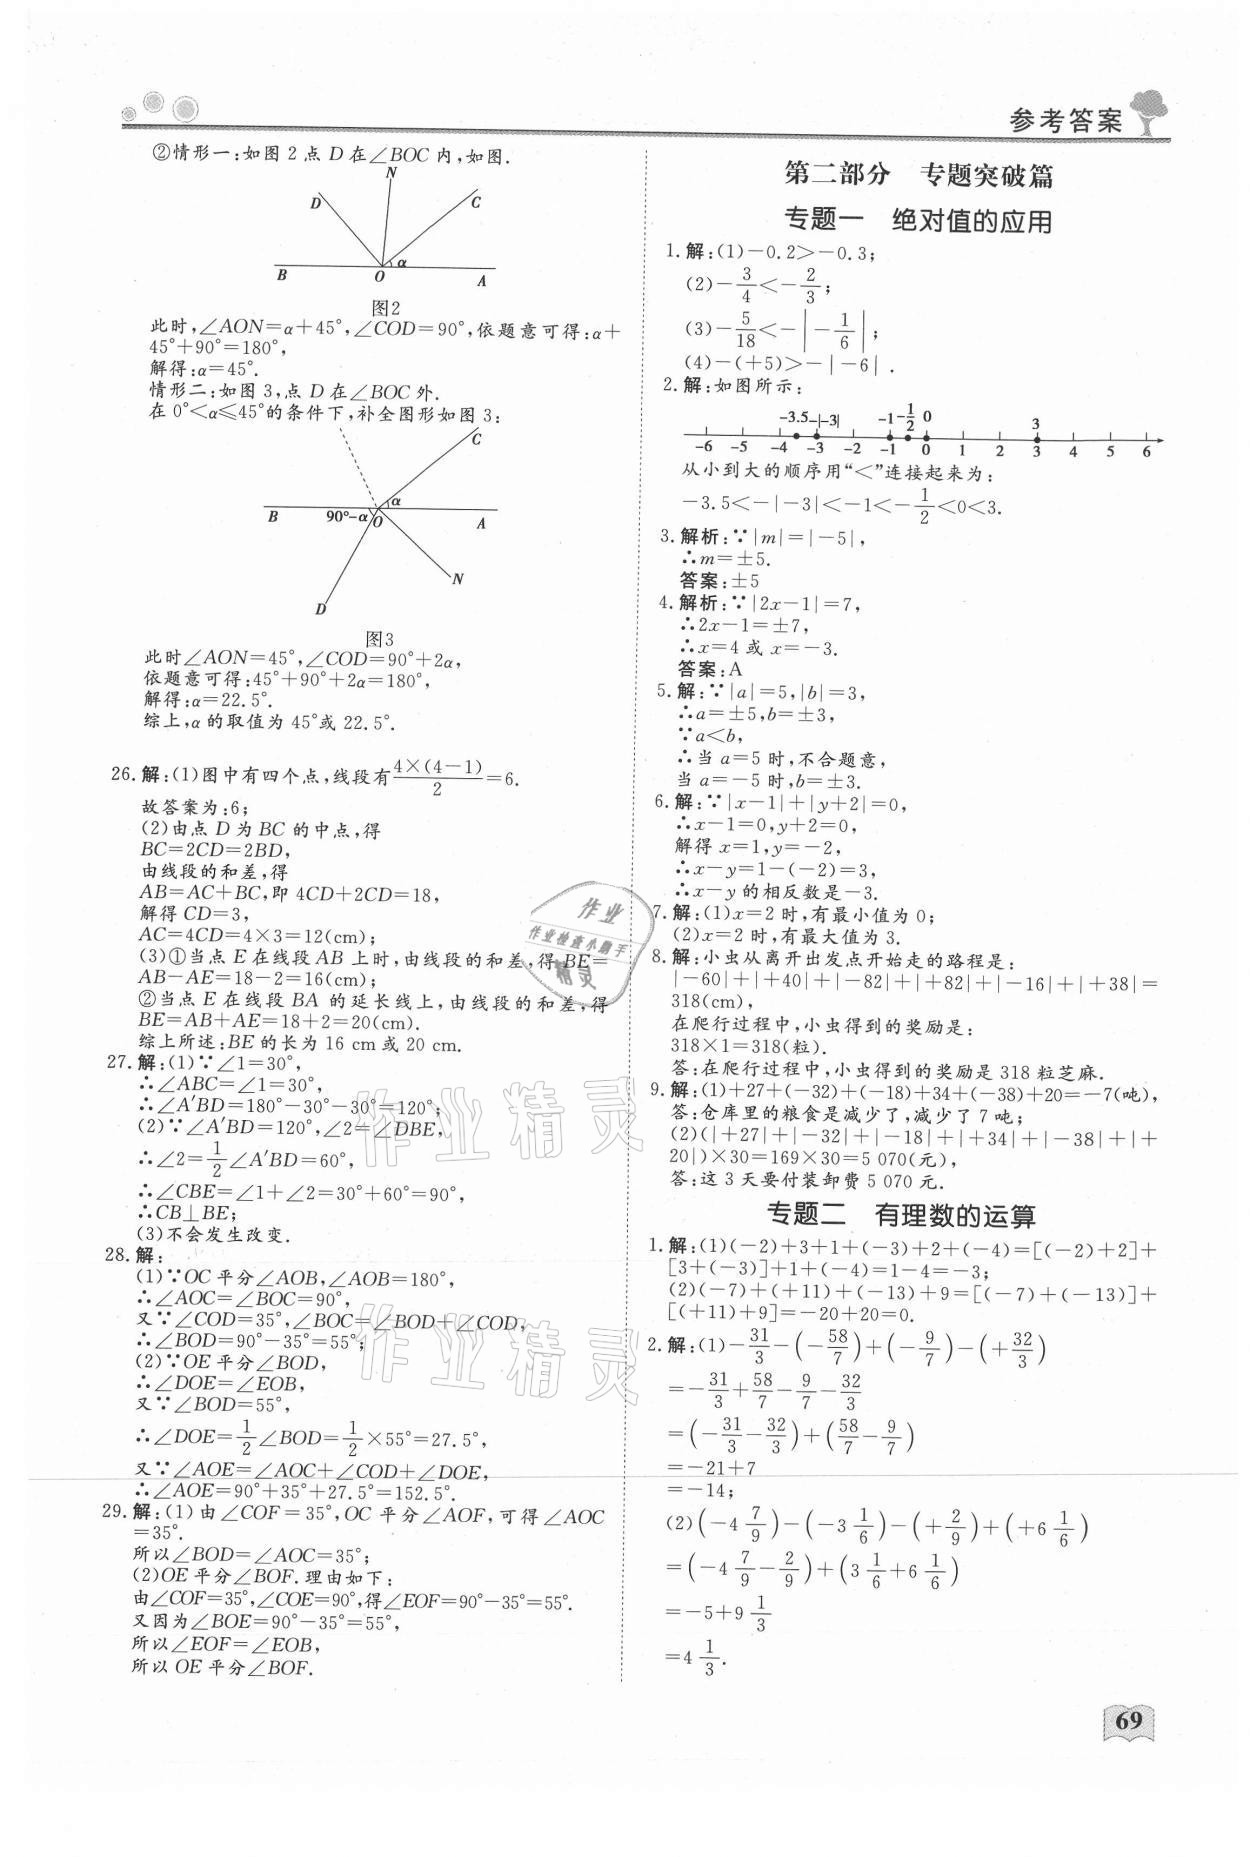 参考答案
②情形一:如图 2 点 D 在∠BOC 内,如图.
N
D
C
α
B
O
A
图2
此时,∠AON=α+45°,∠COD=90°,依题意可得:α+
45°+90°=180°,
解得:α=45°.
情形二:如图 3,点 D 在∠BOC 外.
在 0°<α≤45°的条件下,补全图形如图 3:
C
α
B
90°-α
O
A
N
D
图3
此时∠AON=45°,∠COD=90°+2α,
依题意可得:45°+90°+2α=180°,
解得:α=22.5°.
综上,α 的取值为 45°或 22.5°.
26.解:(1)图中有四个点,线段有\frac{4×(4-1)}{2}=6.
故答案为:6;
(2)由点 D 为 BC 的中点,得
BC=2CD=2BD,
由线段的和差,得
AB=AC+BC,即 4CD+2CD=18,
解得 CD=3,
AC=4CD=4×3=12(cm);
(3)①当点 E 在线段 AB 上时,由线段的和差,得 BE=
AB-AE=18-2=16(cm);
②当点 E 在线段 BA 的延长线上,由线段的和差,得
BE=AB+AE=18+2=20(cm).
综上所述:BE 的长为 16 cm 或 20 cm.
27.解:(1)∵∠1=30°,
∴∠ABC=∠1=30°,
∴∠A′BD=180°-30°-30°=120°;
(2)∵∠A′BD=120°,∠2=∠DBE,
∴∠2=\frac{1}{2}∠A′BD=60°,
∴∠CBE=∠1+∠2=30°+60°=90°,
∴CB⊥BE;
(3)不会发生改变.
28.解:
(1)∵OC 平分∠AOB,∠AOB=180°,
∴∠AOC=∠BOC=90°,
又∵∠COD=35°,∠BOC=∠BOD+∠COD,
∴∠BOD=90°-35°=55°;
(2)∵OE 平分∠BOD,
∴∠DOE=∠EOB,
又∵∠BOD=55°,
∴∠DOE=\frac{1}{2}∠BOD=\frac{1}{2}×55°=27.5°,
又∵∠AOE=∠AOC+∠COD+∠DOE,
∴∠AOE=90°+35°+27.5°=152.5°.
29.解:(1)由∠COF=35°,OC 平分∠AOF,可得∠AOC
=35°.
所以∠BOD=∠AOC=35°;
(2)OE 平分∠BOF.理由如下:
由∠COF=35°,∠COE=90°,得∠EOF=90°-35°=55°.
又因为∠BOE=90°-35°=55°,
所以∠EOF=∠EOB,
所以 OE 平分∠BOF.
第二部分 专题突破篇
专题一 绝对值的应用
1.解:(1)-0.2>-0.3;
(2)-\frac{3}{4}<-\frac{2}{3};
(3)-\frac{5}{18}<-|-\frac{1}{6}|;
(4)-(+5)>-|-6|.
2.解:如图所示:
-3.5 -|-3| -1 -\frac{1}{2} 0 3
-6 -5 -4 -3 -2 -1 0 1 2 3 4 5 6
从小到大的顺序用“<”连接起来为:
-3.5<-|-3|<-1<-\frac{1}{2}<0<3.
3.解析:∵|m|=|-5|,
∴m=±5.
答案:±5
4.解析:∵|2x-1|=7,
∴2x-1=±7,
∴x=4 或 x=-3.
答案:A
5.解:∵|a|=5,|b|=3,
∴a=±5,b=±3,
∵a<b,
∴当 a=5 时,不合题意,
当 a=-5 时,b=±3.
6.解:∵|x-1|+|y+2|=0,
∴x-1=0,y+2=0,
解得 x=1,y=-2,
∴x-y=1-(-2)=3,
∴x-y 的相反数是-3.
7.解:(1)x=2 时,有最小值为 0;
(2)x=2 时,有最大值为 3.
8.解:小虫从离开出发点开始走的路程是:
|-60|+|+40|+|-82|+|+82|+|-16|+|+38|=
318(cm),
在爬行过程中,小虫得到的奖励是:
318×1=318(粒).
答:在爬行过程中,小虫得到的奖励是 318 粒芝麻.
9.解:(1)+27+(-32)+(-18)+34+(-38)+20=-7(吨),
答:仓库里的粮食是减少了,减少了 7 吨;
(2)(|+27|+|-32|+|-18|+|+34|+|-38|+|+
20|)×30=169×30=5 070(元),
答:这 3 天要付装卸费 5 070 元.
专题二 有理数的运算
1.解:(1)(-2)+3+1+(-3)+2+(-4)=[(-2)+2]+
[3+(-3)]+1+(-4)=1-4=-3;
(2)(-7)+(+11)+(-13)+9=[(-7)+(-13)]+
[(+11)+9]=-20+20=0.
2.解:(1)-\frac{31}{3}-(-\frac{58}{7})+(-\frac{9}{7})-(+\frac{32}{3})
=-\frac{31}{3}+\frac{58}{7}-\frac{9}{7}-\frac{32}{3}
=(-\frac{31}{3}-\frac{32}{3})+(\frac{58}{7}-\frac{9}{7})
=-21+7
=-14;
(2)(-4\frac{7}{9})-(-3\frac{1}{6})-(+\frac{2}{9})+(+6\frac{1}{6})
=(-4\frac{7}{9}-\frac{2}{9})+(3\frac{1}{6}+6\frac{1}{6})
=-5+9\frac{1}{3}
=4\frac{1}{3}.
作业
作业检查小助手
精灵
作业精灵
作业精灵
69